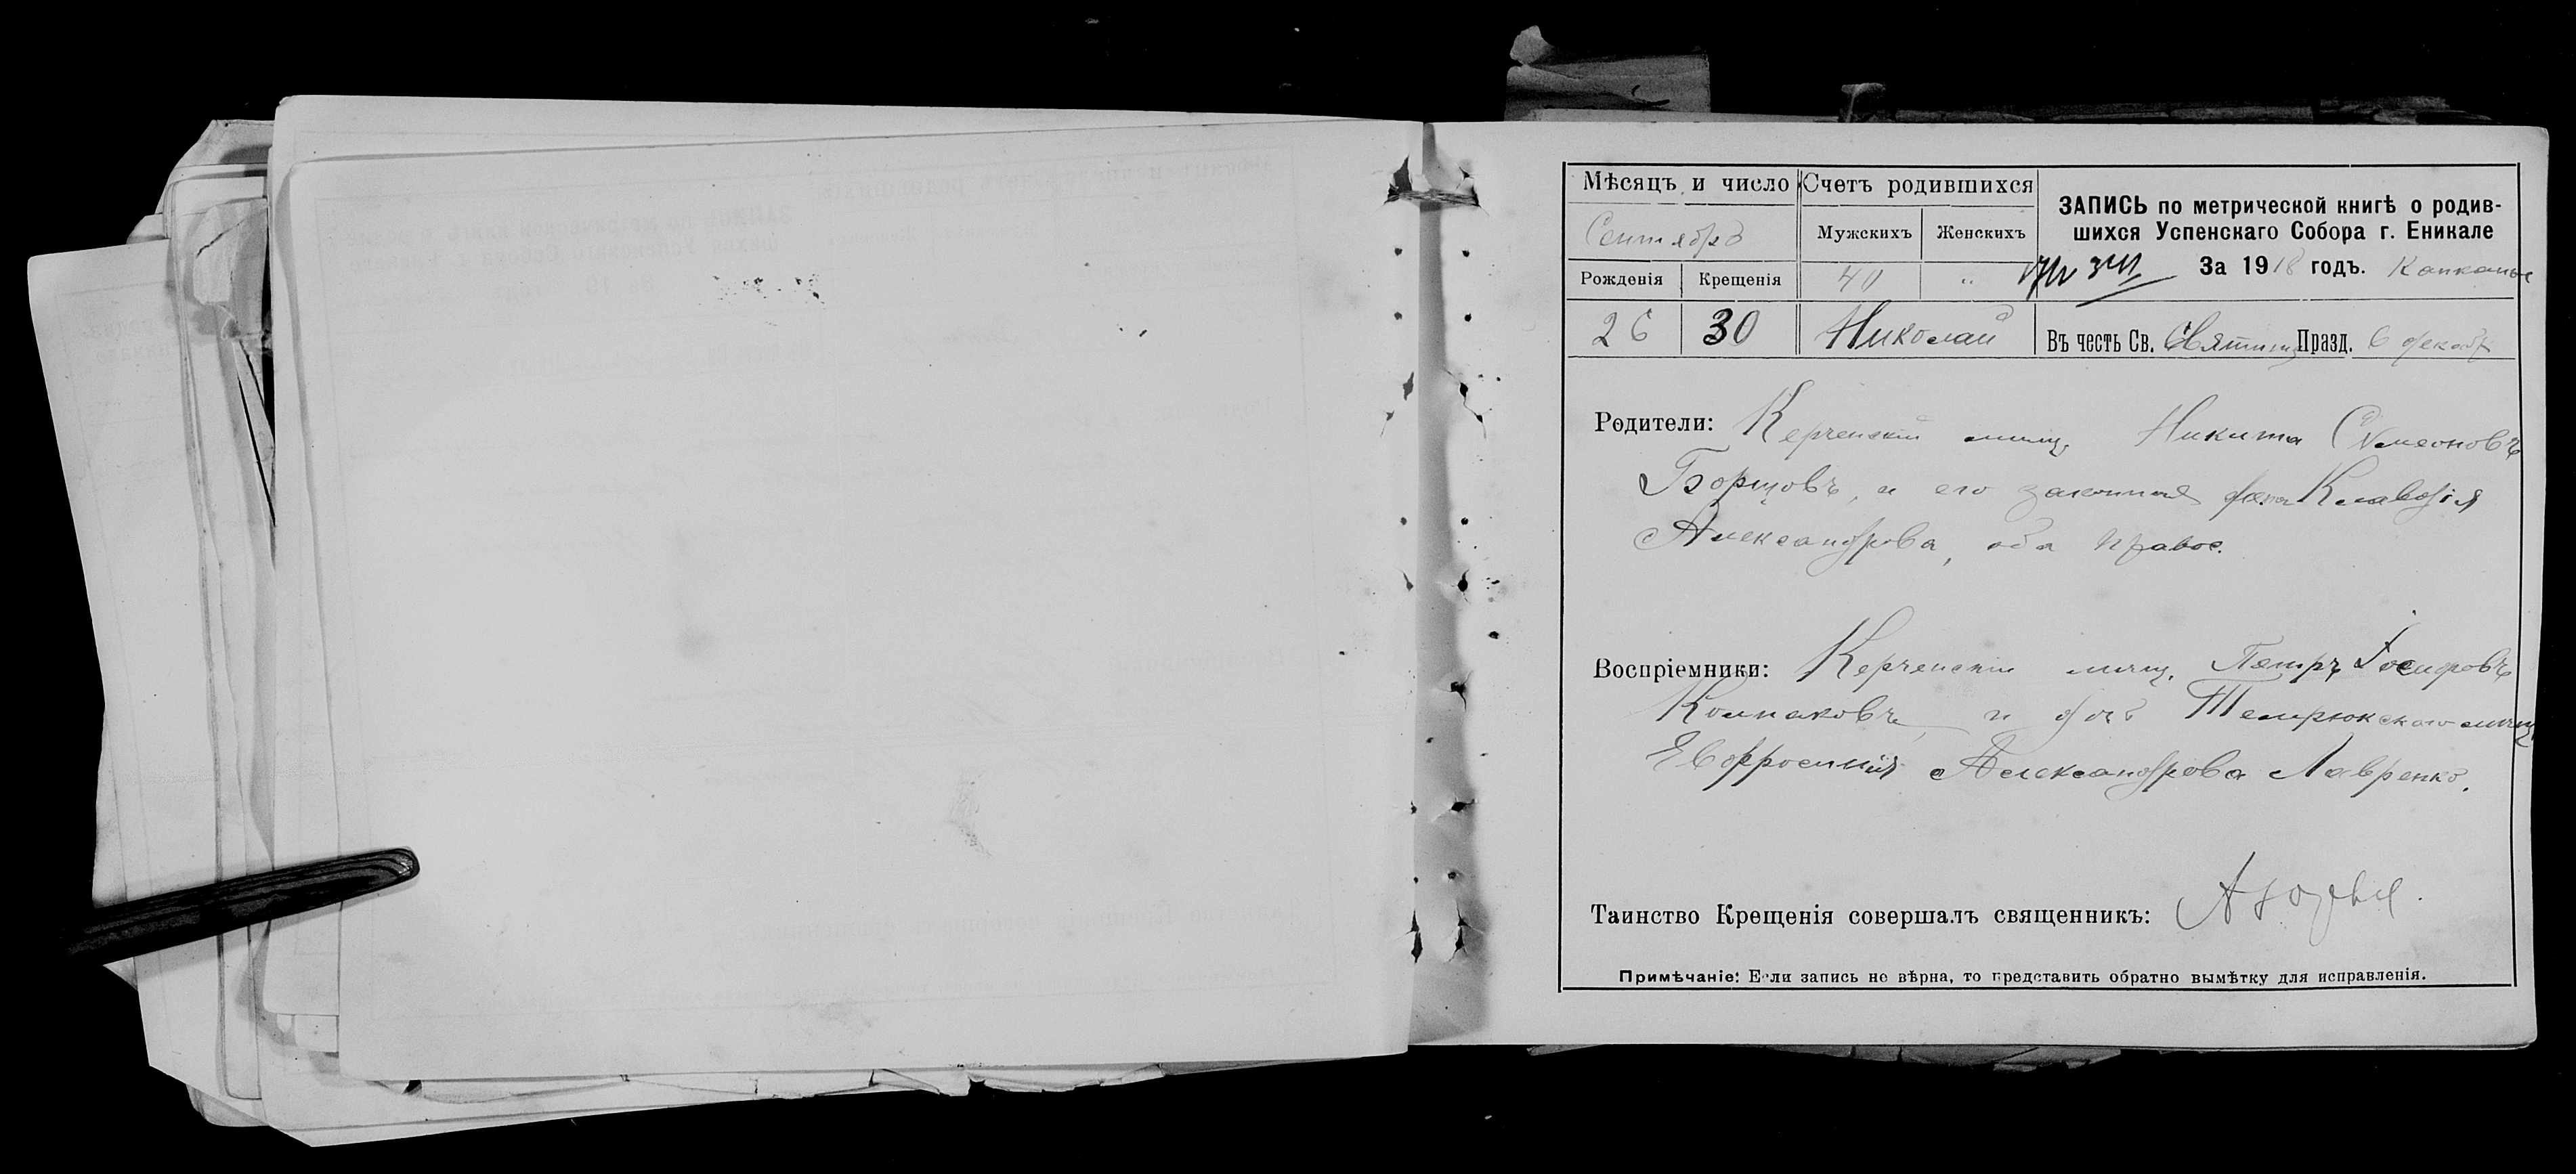 Мѣсяцъ и число
Счетъ родившихся
ЗАПИСЬ по метрической книгѣ о родив-
шихся Успенскаго Собора г. Еникале
За 1918 годъ.
Сентябрь
Мужскихъ
Женскихъ
Рожденія
Крещенія
40
"
26
30
Николай
Въ честь Св. Святит Празд. 6 декабр
Родители: Керченскій мѣщ. Никита Симеоновъ
Борщовъ, и его законная жена Клавдія
Александрова, оба правос.
Воспріемники: Керченскій мѣщ. Петръ Іосифовъ
Колпаковъ, и дочь Темрюкскаго мѣщ.
Евфросинія Александрова Лавренко.
Таинство Крещенія совершалъ священникъ:
Примѣчаніе: Если запись не вѣрна, то представить обратно вымѣтку для исправленія.